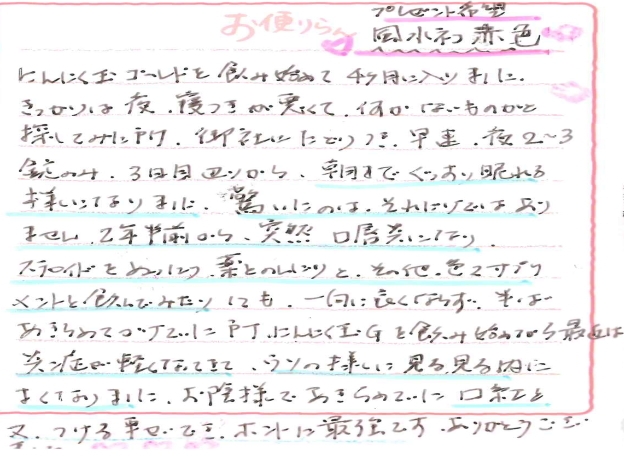 お便りらん
プレゼント希望
風水初 赤色
にんにく玉ゴールドを飲み始めて 4ヶ月に入りました.
きっかけは 夜、寝つきが悪くて、何か ないものかと
探してみた所、御社に たどりつき、早速、夜2〜3
錠のみ、3日目辺りから、朝までぐっすり眠れる
様になりました。驚いたのは、それだけでは あり
ません、2年半前から、突然 口唇炎になり、
ステロイドをぬったり、薬をのんだりと、その他、色々サプリ
メントを飲んでみたりしても、一向に良くならず、半ば
あきらめていた所、にんにく玉Gを飲み始めてから最近は
炎症が軽くなってきて、ウソの様に見る見る内に
よくなりました、お陰様で あきらめていた口紅を
又、つける事ができ、ホントに最強です、ありがとうござい